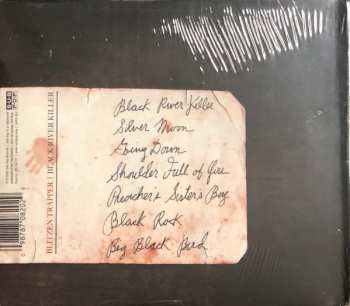 Black River Killer
Silver Moon
Going Down
Shoulder Full of Fire
Preacher's Sister's Boy
Black Rock
Big Black Bird
BLITZEN TRAPPER | BLACK RIVER KILLER
SUB
POP